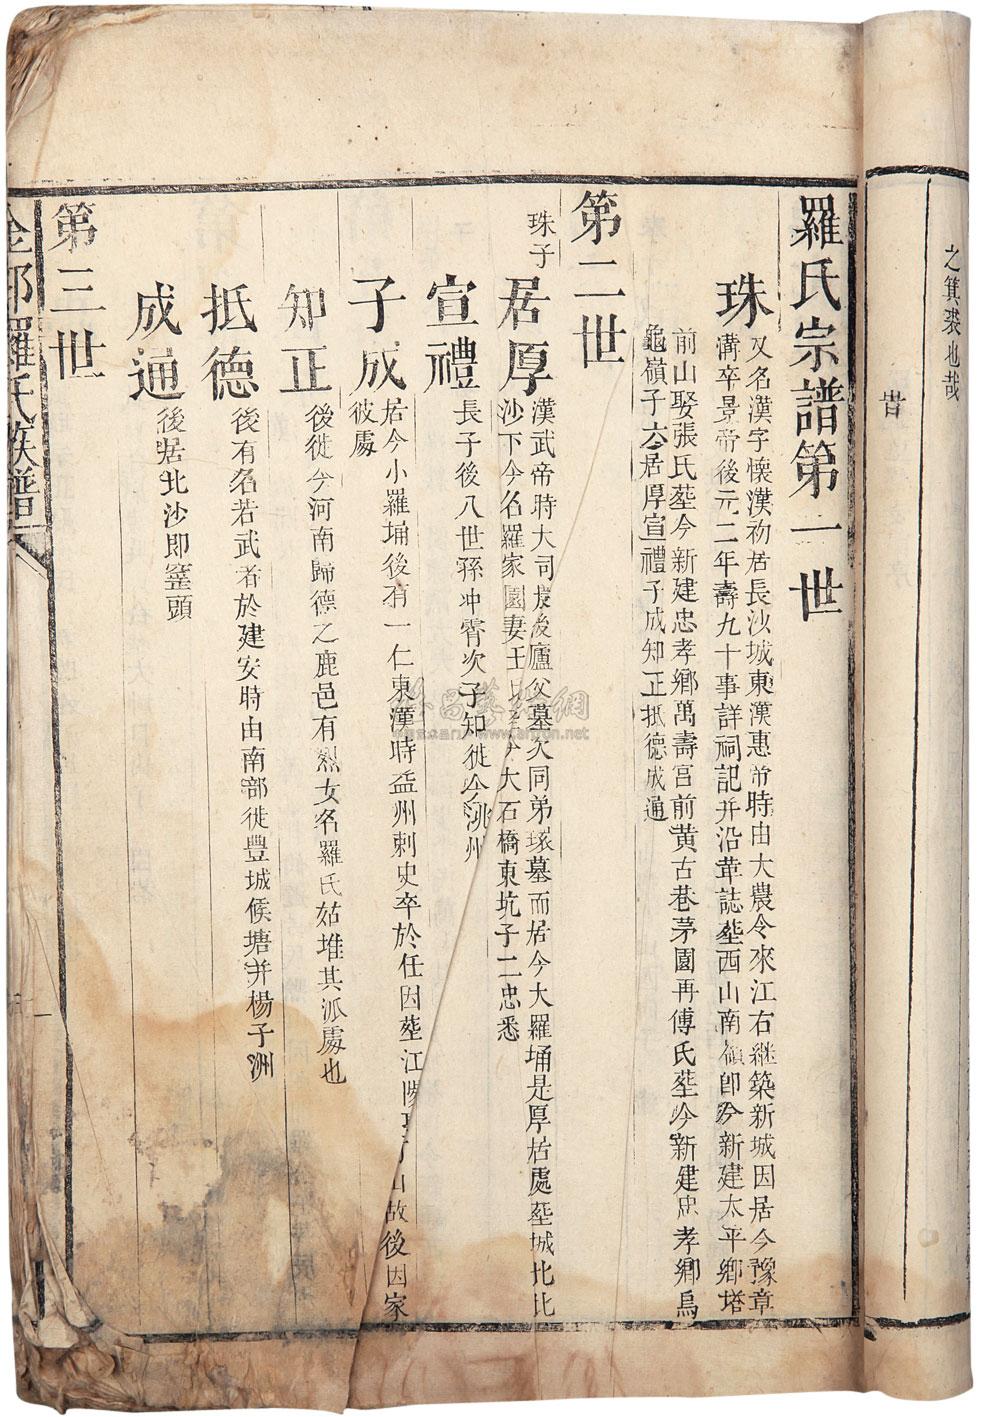 之箕裘也哉
昔
羅氏宗譜第一世
珠
又名漢字懷漢初居長沙城東漢惠帝時由大農令來江右継築新城因居今豫章
溝卒景帝後元二年壽九十事詳祠記并沿革誌塟西山南嶺即今新建太平鄉塔
前山娶張氏塟今新建忠孝鄉萬壽宫前黄古巷茅園再傅氏塟今新建忠孝鄉烏
龜嶺子六居厚宣禮子成知正抵德成通
第二世
珠子
居厚
漢武帝時大司農後廬父墓欠同弟琢墓而居今大羅埇是厚居處塟城北比
沙下今名羅家園妻王氏塟今大石橋東坑子二忠悉
宣禮
長子後八世孫冲霄次子知徙今洮州
子成
居今小羅埇後有一仁東漢時益州刺史卒於任因塟江陽山故後因家
彼處
知正
後徙今河南歸德之鹿邑有烈女名羅氏姑堆其派處也
抵德
後有名若武者於建安時由南部徙豐城候塘并楊子洲
成通
後居北沙即𦲷頭
第三世
羅氏族譜
一